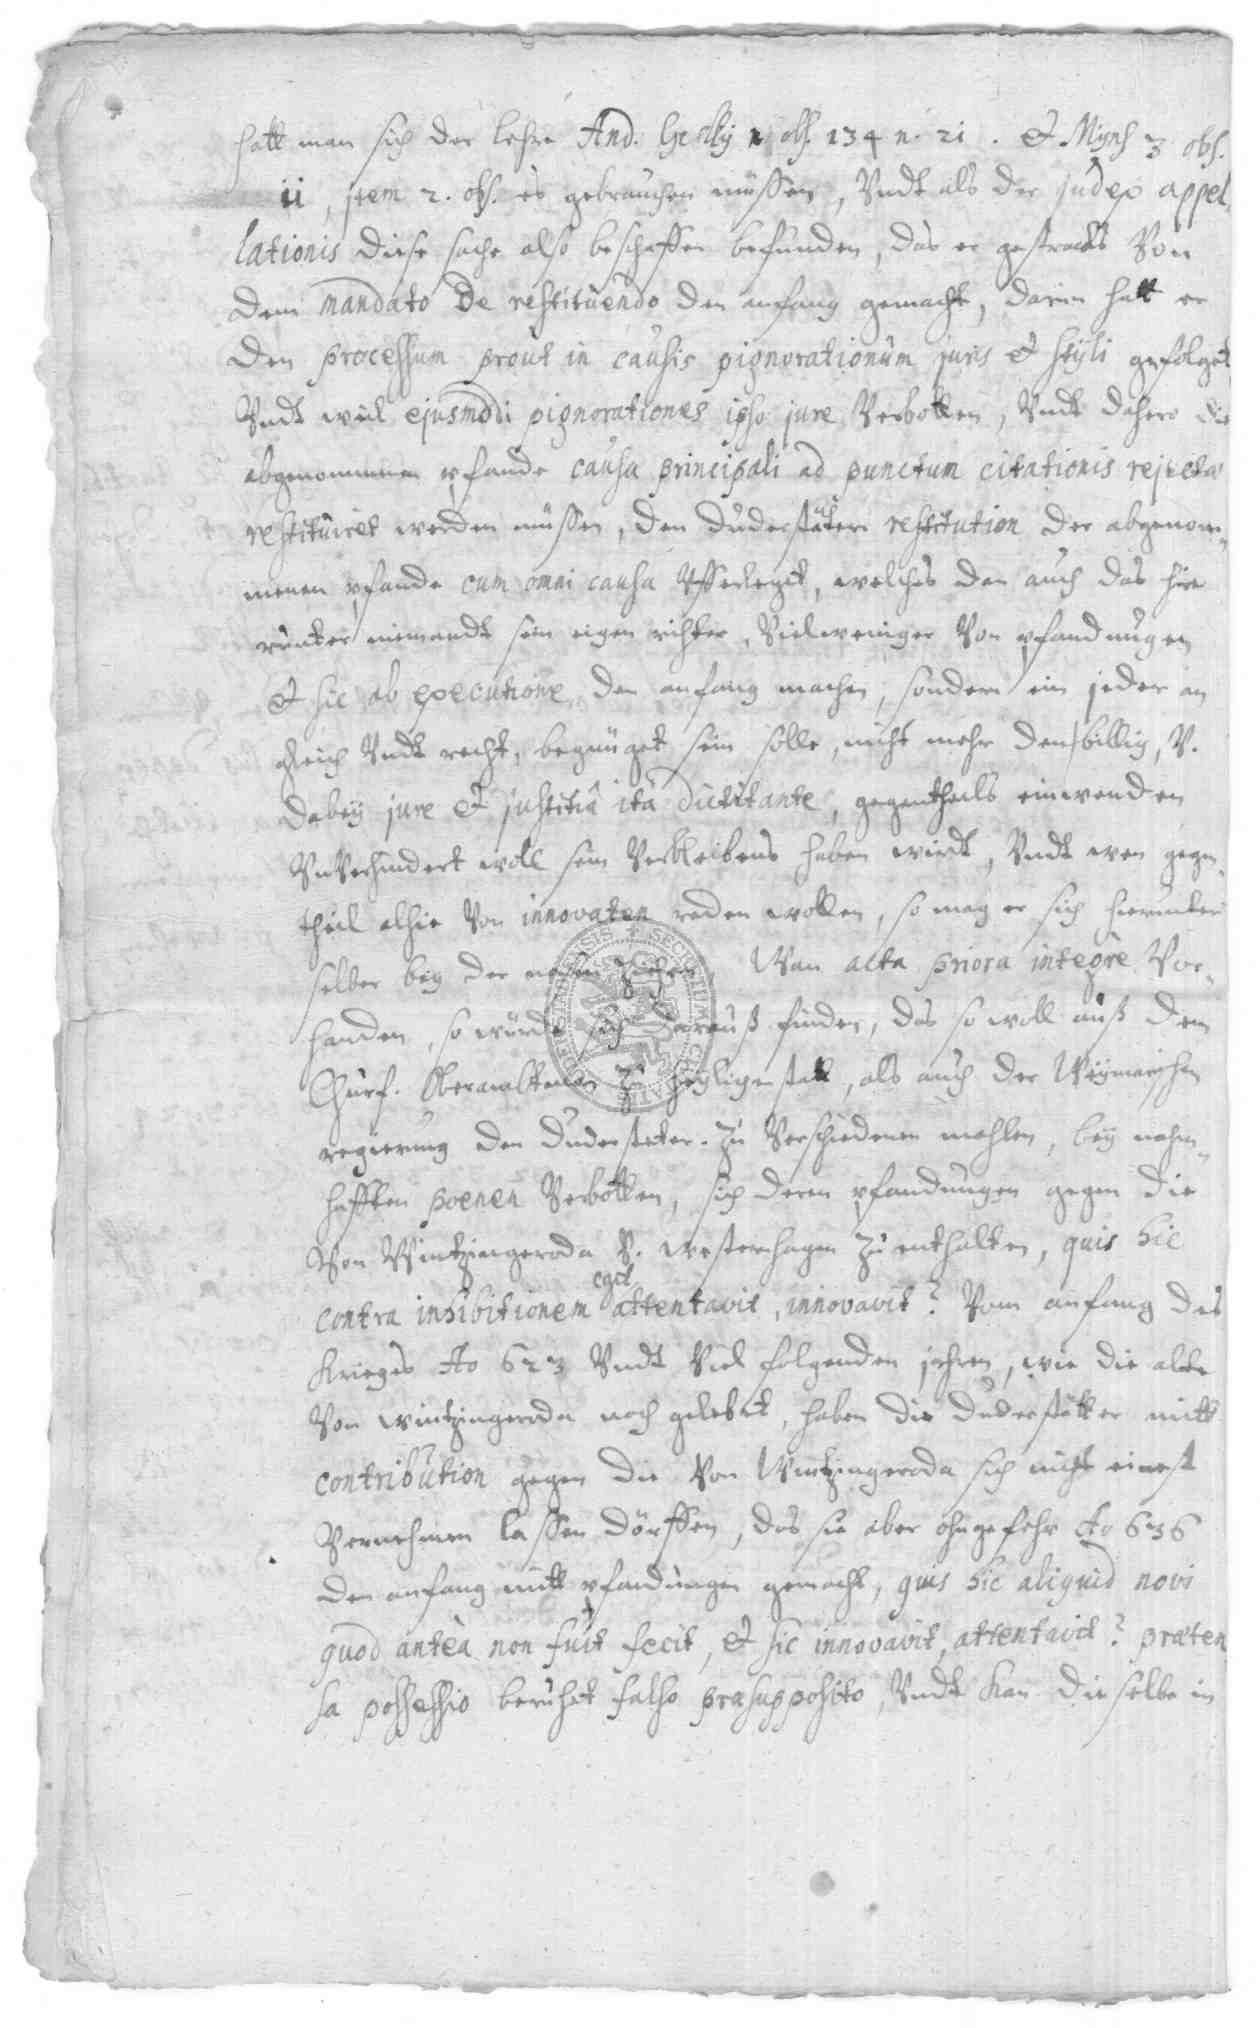 hatt man sich der lehre And. Geilij 1 obs. 134 n. 21. & Myns 3 obs.
11, item 2. obs. es gebrauchen müssen, Undt als der judex appel-
lationis diese sache also beschaffen befunden, das er gestracks Von
dem mandato de restituendo den anfang gemacht, darin hatt er
den processum prout in causis pignorationum juris & styli gefolget
Undt weil ejusmodi pignorationes ipso jure Verbotten, Undt dahero die
abgenommenen pfande causa principali ad punctum citationis rejecta
restituiret werden müssen, den Duderstätern restitution der abgenom-
menen pfande cum omni causa Ufferlegt, welches dan auch das hie
runter niemandt sein eigen richter, Vielweniger Von pfandungen
& sic ab executione den anfang machen, sondern ein jeder an
gleich Undt recht, begnüget sein solle, nicht mehr den billig, V.
dabeÿ jure & justitia ita dictitante, gegentheils einwenden
UnVerhindert woll sein Verbleibens haben wirdt, Undt wen gegen-
theil alhie Von innovaten reden wollen, so mag er sich hierunter
selber beÿ der nasen ziehen, Wan acta priora integre Vor-
handen, so würde sich darauß finden, das so woll auß dem
Churf. Oberambte zu Heyligenstatt, als auch der Weÿmarischen
regierung den Duderstetern zu Verschiedenen mahlen, beÿ nahm-
hafften poenen Verbotten, sich deren pfandungen gegen die
Von Wintzingeroda V. Westernhagen zu enthalten, quis hic
contra inhibitionem attentavit, innovavit? Vom anfang des
Krieges Ao 623 Undt Viel folgenden jahren, wie die alte
Von Wintzingeroda noch gelebet, haben die Duderstätter mitt
contribution gegen die Von Wintzingeroda sich nicht einest
Vernehmen lassen dörffen, das sie aber ohngefehr Ao 636
den anfang mitt pfandungen gemacht, quis hic aliquid novi
quod antea non fuit fecit, & sic innovavit, attentavit? præten
sa possessio beruhet falso præsupposito, Undt kan dieselbe in